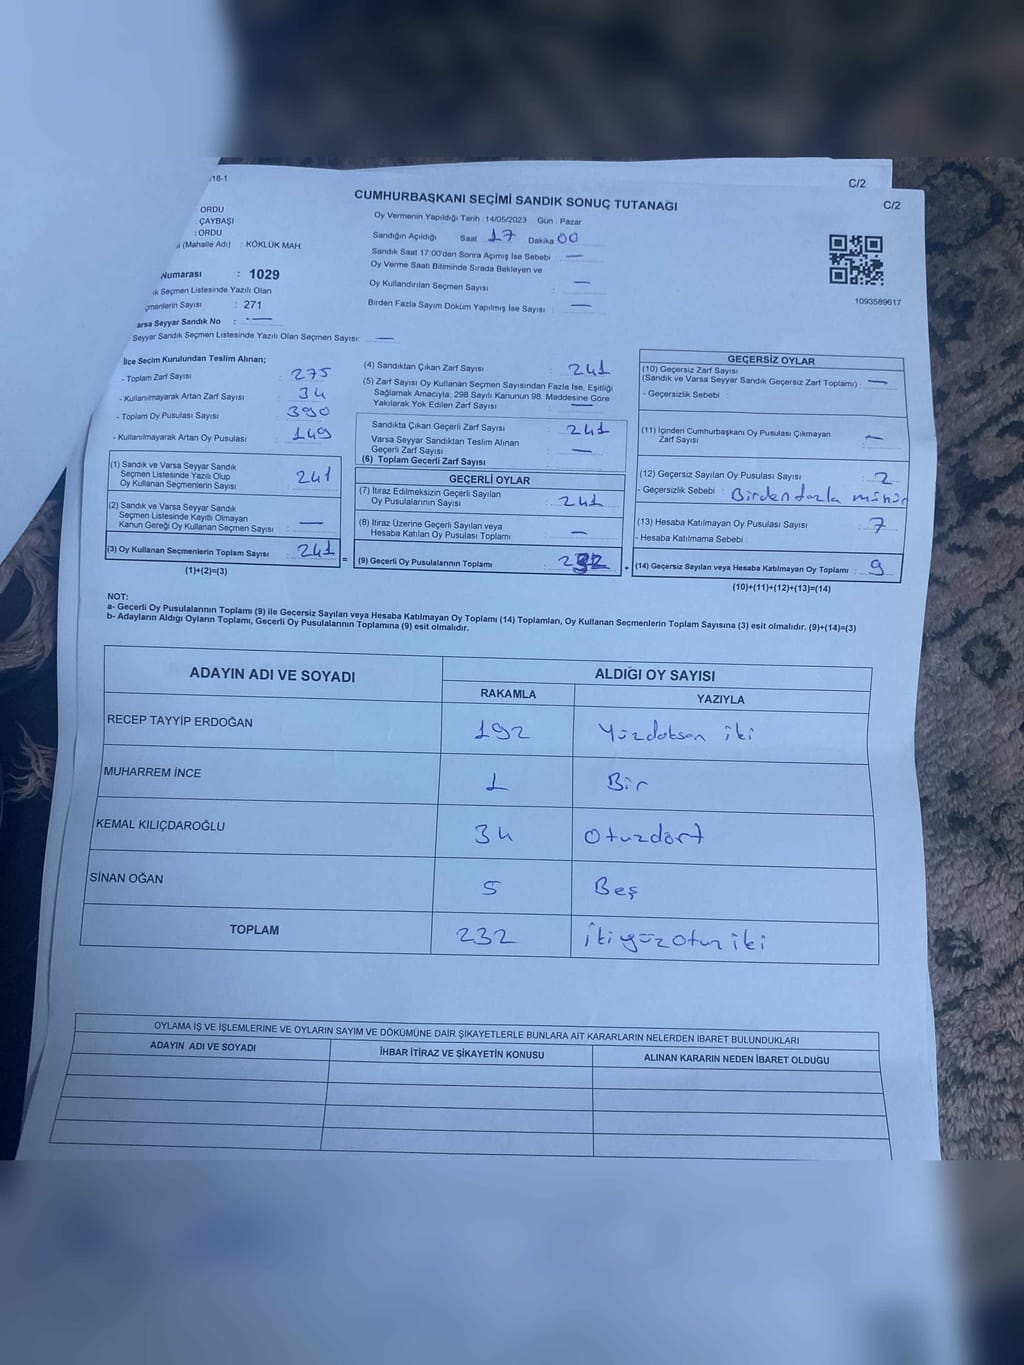 /18-1
C/2
C/2
CUMHURBAŞKANI SEÇİMİ SANDIK SONUÇ TUTANAĞI
ORDU
ÇAYBAŞI
: ORDU
(Mahalle Adı) : KÖKLÜK MAH.
Numarası : 1029
Seçmen Listesinde Yazılı Olan
Sayısı : 271
Seyyar Sandık No : —
Seyyar Sandık Seçmen Listesinde Yazılı Olan Seçmen Sayısı: —
Oy Vermenin Yapıldığı Tarih : 14/05/2023 Gün : Pazar
Sandığın Açıldığı Saat 17 Dakika 00
Sandık Saat 17:00'den Sonra Açımış İse Sebebi —
Oy Verme Saati Bitiminde Sırada Bekleyen ve
Oy Kullandırılan Seçmen Sayısı : —
Birden Fazla Sayım Döküm Yapılmış İse Sayısı : —
1093589617
İlçe Seçim Kurulundan Teslim Alınan;
- Toplam Zarf Sayısı : 275
- Kullanılmayarak Artan Zarf Sayısı : 34
- Toplam Oy Pusulası Sayısı : 390
- Kullanılmayarak Artan Oy Pusulası : 149
(1) Sandık ve Varsa Seyyar Sandık
Seçmen Listesinde Yazılı Olup
Oy Kullanan Seçmenlerin Sayısı : 241
(2) Sandık ve Varsa Seyyar Sandık
Seçmen Listesinde Kayıtlı Olmayan
Kanun Gereği Oy Kullanan Seçmen Sayısı : —
(3) Oy Kullanan Seçmenlerin Toplam Sayısı : 241
(1)+(2)=(3)
=
(4) Sandıktan Çıkan Zarf Sayısı : 241
(5) Zarf Sayısı Oy Kullanan Seçmen Sayısından Fazla İse, Eşitliği
Sağlamak Amacıyla; 298 Sayılı Kanunun 98. Maddesine Göre
Yakılarak Yok Edilen Zarf Sayısı : —
Sandıkta Çıkan Geçerli Zarf Sayısı : 241
Varsa Seyyar Sandıktan Teslim Alınan
Geçerli Zarf Sayısı : —
(6) Toplam Geçerli Zarf Sayısı
GEÇERLİ OYLAR
(7) İtiraz Edilmeksizin Geçerli Sayılan
Oy Pusulalarının Sayısı : 241
(8) İtiraz Üzerine Geçerli Sayılan veya
Hesaba Katılan Oy Pusulası Toplamı : —
(9) Geçerli Oy Pusulalarının Toplamı : 232
+
GEÇERSİZ OYLAR
(10) Geçersiz Zarf Sayısı
(Sandık ve Varsa Seyyar Sandık Geçersiz Zarf Toplamı) : —
- Geçersizlik Sebebi :
(11) İçinden Cumhurbaşkanı Oy Pusulası Çıkmayan
Zarf Sayısı : —
(12) Geçersiz Sayılan Oy Pusulası Sayısı : 2
- Geçersizlik Sebebi : Birden fazla mühür
(13) Hesaba Katılmayan Oy Pusulası Sayısı : 7
- Hesaba Katılmama Sebebi :
(14) Geçersiz Sayılan veya Hesaba Katılmayan Oy Toplamı : 9
(10)+(11)+(12)+(13)=(14)
NOT:
a- Geçerli Oy Pusulalarının Toplamı (9) ile Geçersiz Sayılan veya Hesaba Katılmayan Oy Toplamı (14) Toplamları, Oy Kullanan Seçmenlerin Toplam Sayısına (3) eşit olmalıdır. (9)+(14)=(3)
b- Adayların Aldığı Oyların Toplamı, Geçerli Oy Pusulalarının Toplamına (9) eşit olmalıdır.
ADAYIN ADI VE SOYADI
ALDIĞI OY SAYISI
RAKAMLA YAZIYLA
RECEP TAYYİP ERDOĞAN 192 Yüzdoksan iki
MUHARREM İNCE 1 Bir
KEMAL KILIÇDAROĞLU 34 Otuzdört
SİNAN OĞAN 5 Beş
TOPLAM 232 İkiyüzotuziki
OYLAMA İŞ VE İŞLEMLERİNE VE OYLARIN SAYIM VE DÖKÜMÜNE DAİR ŞİKAYETLERLE BUNLARA AİT KARARLARIN NELERDEN İBARET BULUNDUKLARI
ADAYIN ADI VE SOYADI İHBAR İTİRAZ VE ŞİKAYETİN KONUSU ALINAN KARARIN NEDEN İBARET OLDUĞU